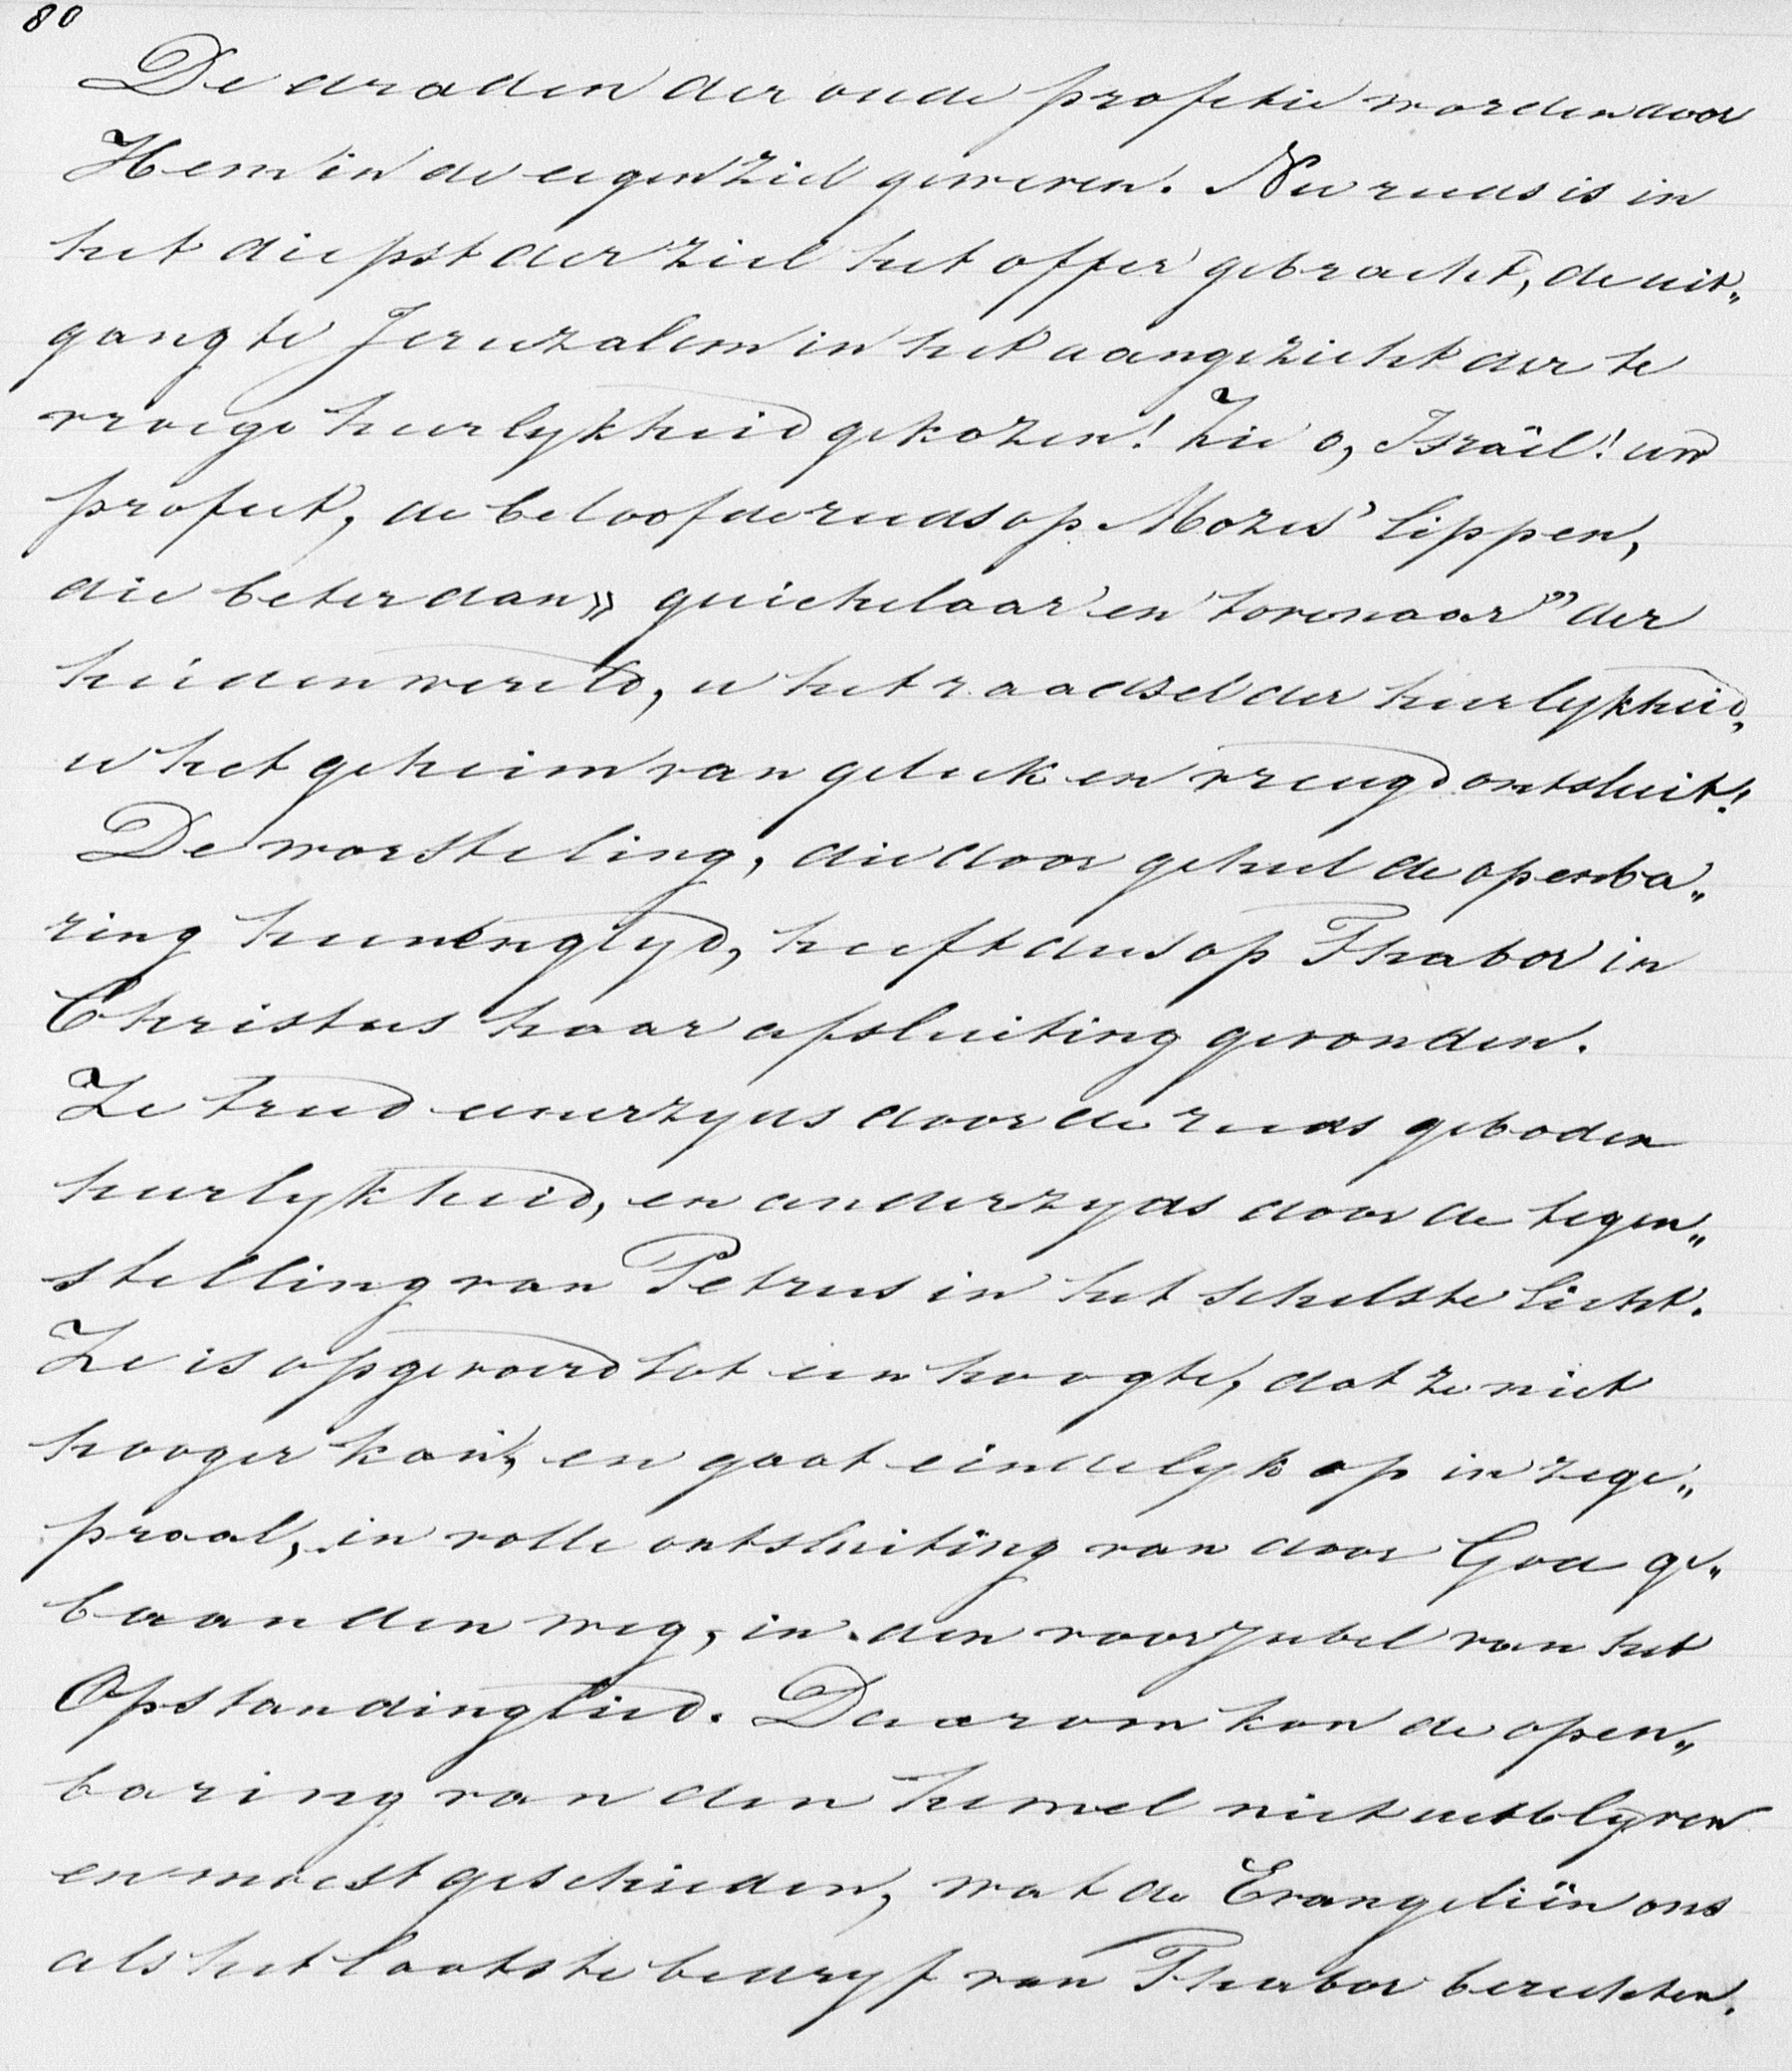 80
De draden der oude profetie worden door
Hem in de eigen ziel geweven. Nu reeds is in
het diepst der ziel het offer gebracht, de uit„
gang te Jeruzalem in het aangezicht der te
vroege heerlykheid gekozen! Zie o, Israël! uw
profeet, de beloofde reeds op Mozes' lippen,
die beter dan » guichelaar en tovenaar” der
heidenwereld, u het raadsel der heerlykheid,
u het geheim van geluk en vreugd ontsluit!
De worsteling, die door geheel de openba„
ring heenenglyd, heeft dus op Thabor in
Christus haar afsluiting gevonden.
Ze treed eenerzyds door de reeds geboden
heerlykheid, en anderzyds door de tegen„
stelling van Petrus in het schelste licht.
Ze is opgevoerd tot een hoogte, dat ze niet
hooger kan, en gaat eindelyk op in zege„
praal, in volle ontsluiting van door God ge„
baanden weg, in den voorjubel van het
Opstandinglied. Daarom kon de open„
baring van den hemel niet uitblyven
en moest geschieden, wat de Evangeliën ons
als het laatste bedryf van Thabor berichten.